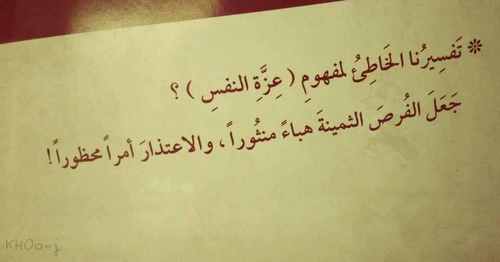 * تَفسِيرُنا الخَاطِئُ لمفهومِ ( عِزَّةِ النفسِ ) ؟
جَعَلَ الفُرصَ الثمينةَ هباءً منثُوراً ، والاعتذارَ أمراً محظوراً !